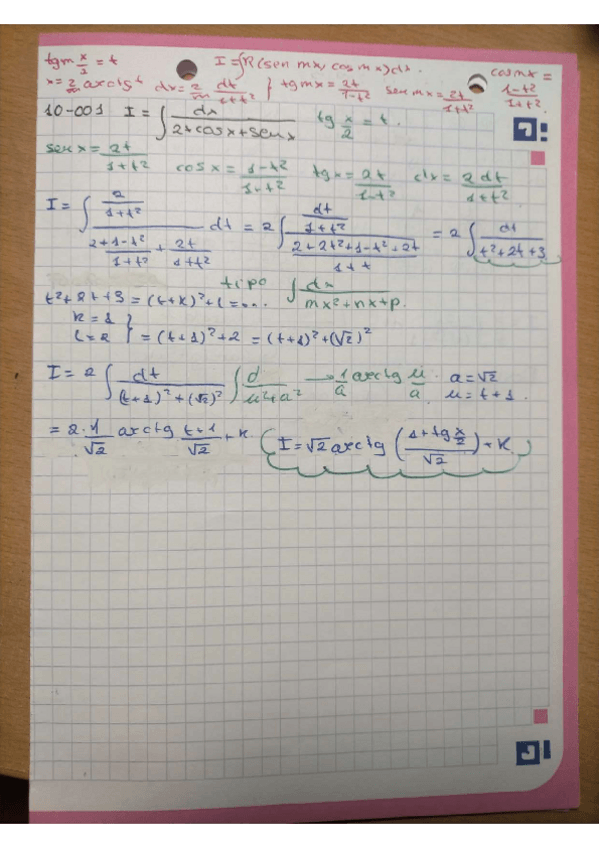 tg m x/2 = t   I = ∫R(sen mx, cos mx)dx.   cos mx =
x = 2/m arctg t   dx = 2/m dt/1+t² } tg mx = 2t/1-t²   sen mx = 2t/1+t²   1-t²/1+t².
10-001   I = ∫ dx/2+cosx+senx   tg x/2 = t.
sen x = 2t/1+t²   cos x = 1-t²/1+t²   tg x = 2t/1-t²   dx = 2dt/1+t².
I = ∫ 2/1+t² / 2+1-t²/1+t² + 2t/1+t² dt = 2 ∫ dt/1+t² / 2+2t²+1-t²+2t/1+t = 2 ∫ dt/t²+2t+3
tipo ∫ dx/mx²+nx+p.
t²+2t+3 = (t+K)²+L = ...
K = 1
L = 2 } = (t+1)²+2 = (t+1)²+(√2)²
I = 2 ∫ dt/(t+1)²+(√2)²   ∫ d/u²+a² → 1/a arctg u/a.   a = √2
u = t+1.
= 2·1/√2 arctg t+1/√2 + K.   I = √2 arctg (1+tg x/2/√2) + K.